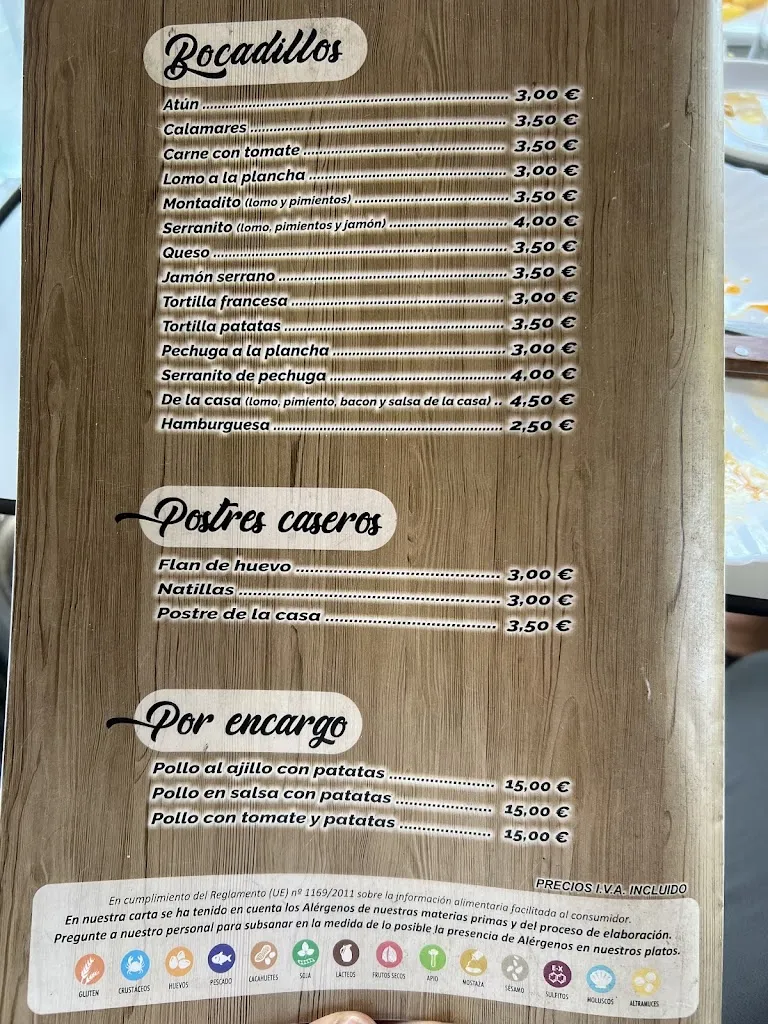 Bocadillos
Atún 3,00 €
Calamares 3,50 €
Carne con tomate 3,50 €
Lomo a la plancha 3,00 €
Montadito (lomo y pimientos) 3,50 €
Serranito (lomo, pimientos y jamón) 4,00 €
Queso 3,50 €
Jamón serrano 3,50 €
Tortilla francesa 3,00 €
Tortilla patatas 3,50 €
Pechuga a la plancha 3,00 €
Serranito de pechuga 4,00 €
De la casa (lomo, pimiento, bacon y salsa de la casa) .. 4,50 €
Hamburguesa 2,50 €
Postres caseros
Flan de huevo 3,00 €
Natillas 3,00 €
Postre de la casa 3,50 €
Por encargo
Pollo al ajillo con patatas 15,00 €
Pollo en salsa con patatas 15,00 €
Pollo con tomate y patatas 15,00 €
PRECIOS I.V.A. INCLUIDO
En cumplimiento del Reglamento (UE) nº 1169/2011 sobre la información alimentaria facilitada al consumidor.
En nuestra carta se ha tenido en cuenta los Alérgenos de nuestras materias primas y del proceso de elaboración.
Pregunte a nuestro personal para subsanar en la medida de lo posible la presencia de Alérgenos en nuestros platos.
E-X
GLUTEN CRUSTÁCEOS HUEVOS PESCADO CACAHUETES SOJA LÁCTEOS FRUTOS SECOS APIO MOSTAZA SÉSAMO SULFITOS MOLUSCOS ALTRAMUCES